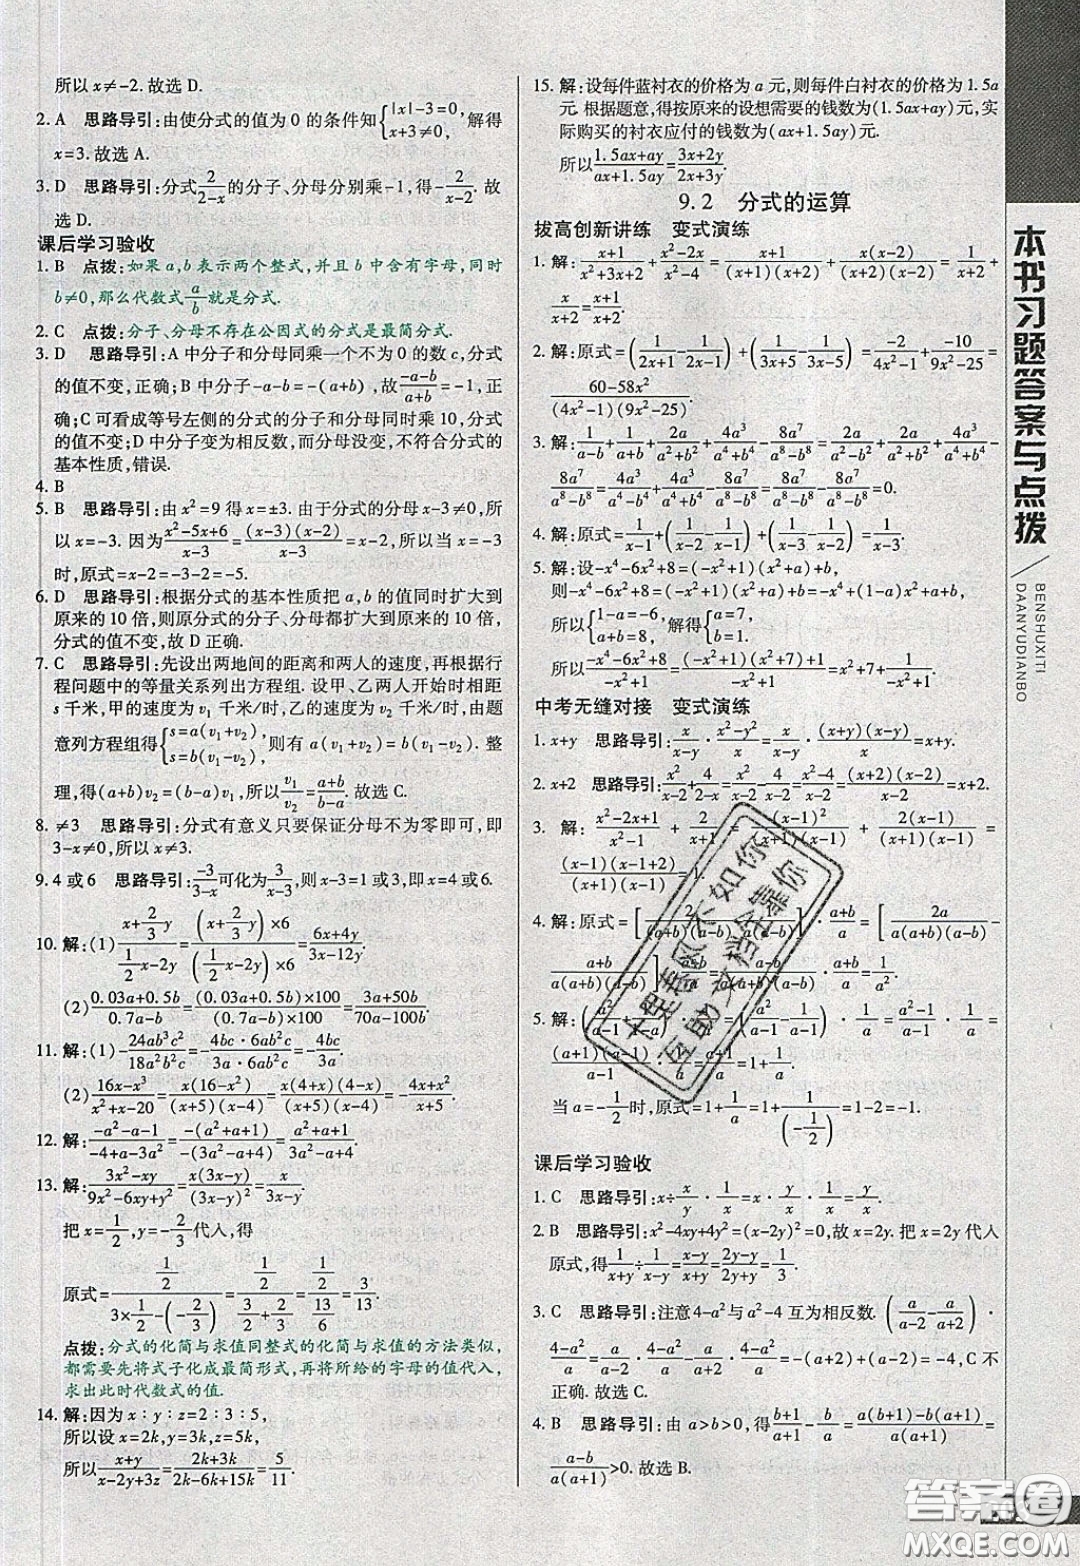 所以 x≠-2. 故选 D.
2. A 思路导引:由使分式的值为 0 的条件知{|x|-3=0, x+3≠0, 解得
x=3. 故选 A.
3. D 思路导引:分式2/(2-x)的分子、分母分别乘-1,得-2/(x-2). 故
选 D.
课后学习验收
1. B 点拨:如果 a,b 表示两个整式,并且 b 中含有字母,同时
b≠0,那么代数式a/b就是分式.
2. C 点拨:分子、分母不存在公因式的分式是最简分式.
3. D 思路导引:A 中分子和分母同乘一个不为 0 的数 c,分式
的值不变,正确;B 中分子-a-b=-(a+b),故(-a-b)/(a+b)=-1,正
确;C 可看成等号左侧的分式的分子和分母同时乘 10,分式
的值不变;D 中分子变为相反数,而分母没变,不符合分式的
基本性质,错误.
4. B
5. B 思路导引:由 x²=9 得 x=±3. 由于分式的分母 x-3≠0,所
以 x=-3. 因为(x²-5x+6)/(x-3)=(x-3)(x-2)/(x-3)=x-2,所以当 x=-3
时,原式=-3-2=-5.
6. D 思路导引:根据分式的基本性质把 a,b 的值同时扩大到
原来的 10 倍,则原分式的分子、分母都扩大到原来的 10 倍,
分式的值不变,故 D 正确.
7. C 思路导引:先设出两地间的距离和两人的速度,再根据行
程问题中的等量关系列出方程组. 设甲、乙两人开始时相距
s 千米,甲的速度为 v₁ 千米/时,乙的速度为 v₂ 千米/时,根据题
意列方程组得{s=a(v₁+v₂), s=b(v₁-v₂), 则有 a(v₁+v₂)=b(v₁-v₂). 整
理,得(a+b)v₂=(b-a)v₁,所以v₁/v₂=(a+b)/(b-a). 故选 C.
8. ≠3 思路导引:分式有意义只要保证分母不为零即可,即
3-x≠0,所以 x≠3.
9. 4 或 6 思路导引:-3/(3-x)可化为3/(x-3),则 x-3=1 或 3,即 x=4 或 6.
10. 解:(1)(x+2/3y)/(1/2x-2y)=((x+2/3y)×6)/((1/2x-2y)×6)=(6x+4y)/(3x-12y).
(2)(0.03a+0.5b)/(0.7a-b)=(0.03a+0.5b)×100/((0.7a-b)×100)=(3a+50b)/(70a-100b).
11. 解:(1)-24ab³c²/(18a²b²c)=-(4bc·6ab²c)/(3a·6ab²c)=-4bc/(3a).
(2)(16x-x³)/(x²+x-20)=x(16-x²)/((x+5)(x-4))=x(4+x)(4-x)/((x+5)(x-4))=-(4x+x²)/(x+5).
12. 解:(-a²-a-1)/(-4+a-3a²)=-(a²+a+1)/(-(3a²-a+4))=(a²+a+1)/(3a²-a+4).
13. 解:(3x²-xy)/(9x²-6xy+y²)=x(3x-y)/(3x-y)²=x/(3x-y).
把 x=1/2,y=-2/3代入,得
原式=(1/2)/(3×1/2-(-2/3))=(1/2)/(3/2+2/3)=(1/2)/(13/6)=3/13.
点拨:分式的化简与求值同整式的化简与求值的方法类似,
都需要先将式子化成最简形式,再将所给的字母的值代入,
求出此时代数式的值.
14. 解:因为 x∶y∶z=2∶3∶5,
所以设 x=2k,y=3k,z=5k,
所以(x+y)/(x-2y+3z)=(2k+3k)/(2k-6k+15k)=5/11.
15. 解:设每件蓝衬衣的价格为 a 元,则每件白衬衣的价格为 1.5a
元. 根据题意,得按原来的设想需要的钱数为(1.5ax+ay)元,实
际购买的衬衣应付的钱数为(ax+1.5ay)元.
所以(1.5ax+ay)/(ax+1.5ay)=(3x+2y)/(2x+3y).
9.2 分式的运算
拔高创新讲练 变式演练
1. 解:(x+1)/(x²+3x+2)+(x²-2x)/(x²-4)=(x+1)/((x+1)(x+2))+x(x-2)/((x+2)(x-2))=1/(x+2)+
x/(x+2)=(x+1)/(x+2).
2. 解:原式=(1/(2x+1)-1/(2x-1))+(1/(3x+5)-1/(3x-5))=-2/(4x²-1)+-10/(9x²-25)=
(60-58x²)/((4x²-1)(9x²-25)).
3. 解:1/(a-b)+1/(a+b)+2a/(a²+b²)+4a³/(a⁴+b⁴)-8a⁷/(a⁸-b⁸)=2a/(a²-b²)+2a/(a²+b²)+4a³/(a⁴+b⁴)
-8a⁷/(a⁸-b⁸)=4a³/(a⁴-b⁴)+4a³/(a⁴+b⁴)-8a⁷/(a⁸-b⁸)=8a⁷/(a⁸-b⁸)-8a⁷/(a⁸-b⁸)=0.
4. 解:原式=1/(x-1)-1/x+1/(x-2)-1/(x-1)+1/(x-3)-1/(x-2)=1/(x-3)-1/x.
5. 解:设-x⁴-6x²+8=(-x²+1)(x²+a)+b,
则-x⁴-6x²+8=-x⁴+(1-a)x²+a+b,
所以{1-a=-6, a+b=8, 解得{a=7, b=1.
所以(-x⁴-6x²+8)/(-x²+1)=x²+7+1/(-x²+1).
中考无缝对接 变式演练
1. x+y 思路导引:x/(x-y)·(x²-y²)/x=x/(x-y)·(x+y)(x-y)/x=x+y.
2. x+2 思路导引:x²/(x-2)+4/(2-x)=x²/(x-2)-4/(x-2)=(x²-4)/(x-2)=(x+2)(x-2)/(x-2)=x+2.
3. 解:(x²-2x+1)/(x²-1)+2/(x+1)=(x-1)²/((x+1)(x-1))+2(x-1)/((x+1)(x-1))=
(x-1)(x-1+2)/((x+1)(x-1))=1.
4. 解:原式=[2a/(a(a+b)(a-b))-(a+b)/(a(a+b)(a-b))]·(a+b)/a=[2a/(a(a+b)(a-b)-
(a+b)/(a(a+b)(a-b))]·(a+b)/a=(a-b)/(a(a+b)(a-b))·(a+b)/a=1/a².
5. 解:(a²/(a-1)-1/(a-1))·1/a=(a²-1)/(a-1)·1/a=
(a+1)(a-1)/(a-1)·1/a=(a+1)·1/a=1+1/a.
当 a=-1/2时,原式=1+1/a=1+1/(-1/2)=1-2=-1.
课后学习验收
1. C 思路导引:x÷x/y·1/x=x·y/x·1/x=y/x.
2. B 思路导引:x²-4xy+4y²=(x-2y)²=0,故 x=2y. 把 x=2y 代人
原式,得1/(x+y)÷1/(x-y)=(x-y)/(x+y)=(2y-y)/(2y+y)=1/3.
3. C 思路导引:注意 4-a² 与 a²-4 互为相反数. (a/(a-2)-a/(a+2))·
(4-a²)/a=a/(a-2)·(4-a²)/a-a/(a+2)·(4-a²)/a=-(a+2)+(a-2)=-4,C 不
正确. 故选 C.
4. B 思路导引:由 a>b>0,得(b+1)/(a+1)-b/a=(a(b+1)-b(a+1))/(a(a+1))=
(a-b)/(a(a+1))>0. 故选 B.
本书习题答案与点拨
BENSHUXITI
DAANYUDIANBO
十里春风不如你
互助文档只靠你
答案圈
MXQE.COM